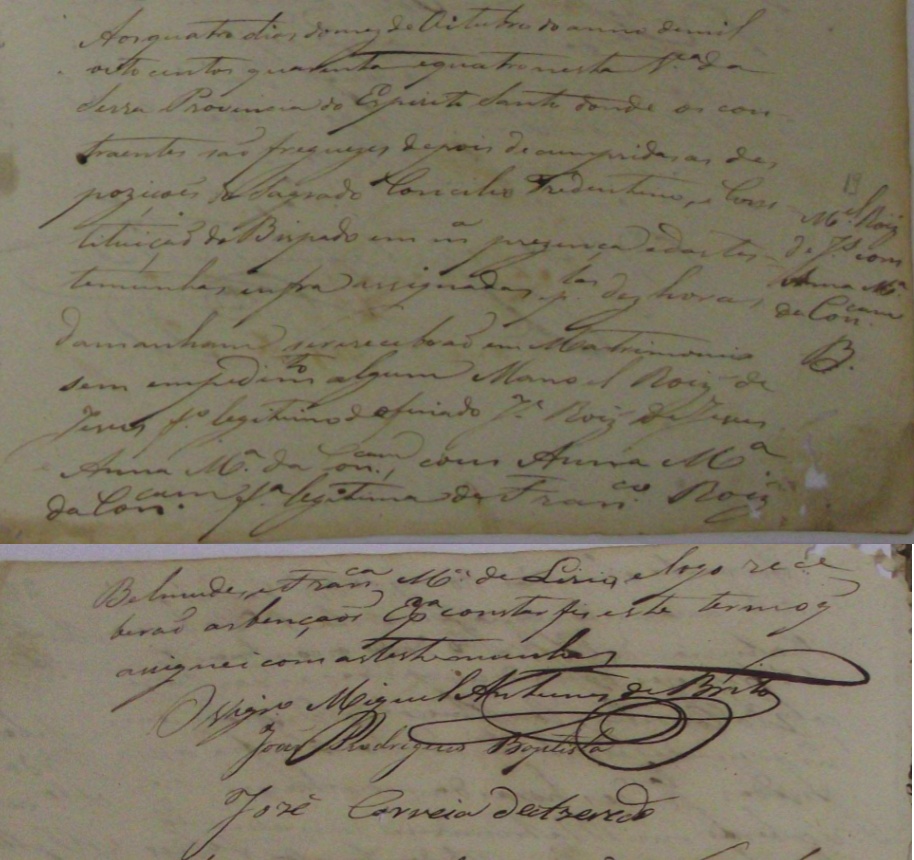 Aos quatro dias do mez de Oitubro do anno de mil
oito centos quarenta e quatro nesta V.ª da
Serra Provincia do Espirito Santo donde os con
traentes são freguezes depois de cumpridas as des
poziçoẽs do Sagrado Concilio Tredentino, e Cons
tituição do Bispado em m.ª presença e das tes-
temunhas infra assignadas pelas dez horas
da manham se receberão em Matrimonio
sem empedim.to algum Manoel Roiz de
Jesus f.º legitimo do Roiz de Jesus
Anna M.ª da Con.cam, com Anna M.ª
da Con.cam f.ª legitima de Fran.co Roiz
19
M.el Roiz
de J.s com
Anna M.ª
da Con.cam
B.
Belmude, e Fran.ca M.ª de Lirio, e logo rece
berão as bençaõs E p.ª constar fis este termo q̃
asignei com as testemunhas
O Vigro Miguel Antunes de Brito
João Rodrigues Baptista
José Correia de Azeredo